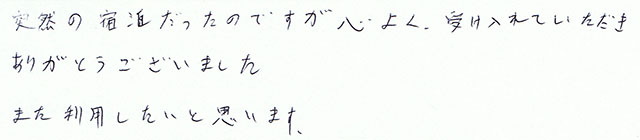 突然の宿泊だったのですが心よく、受け入れていただき
ありがとうございました
また利用したいと思います。